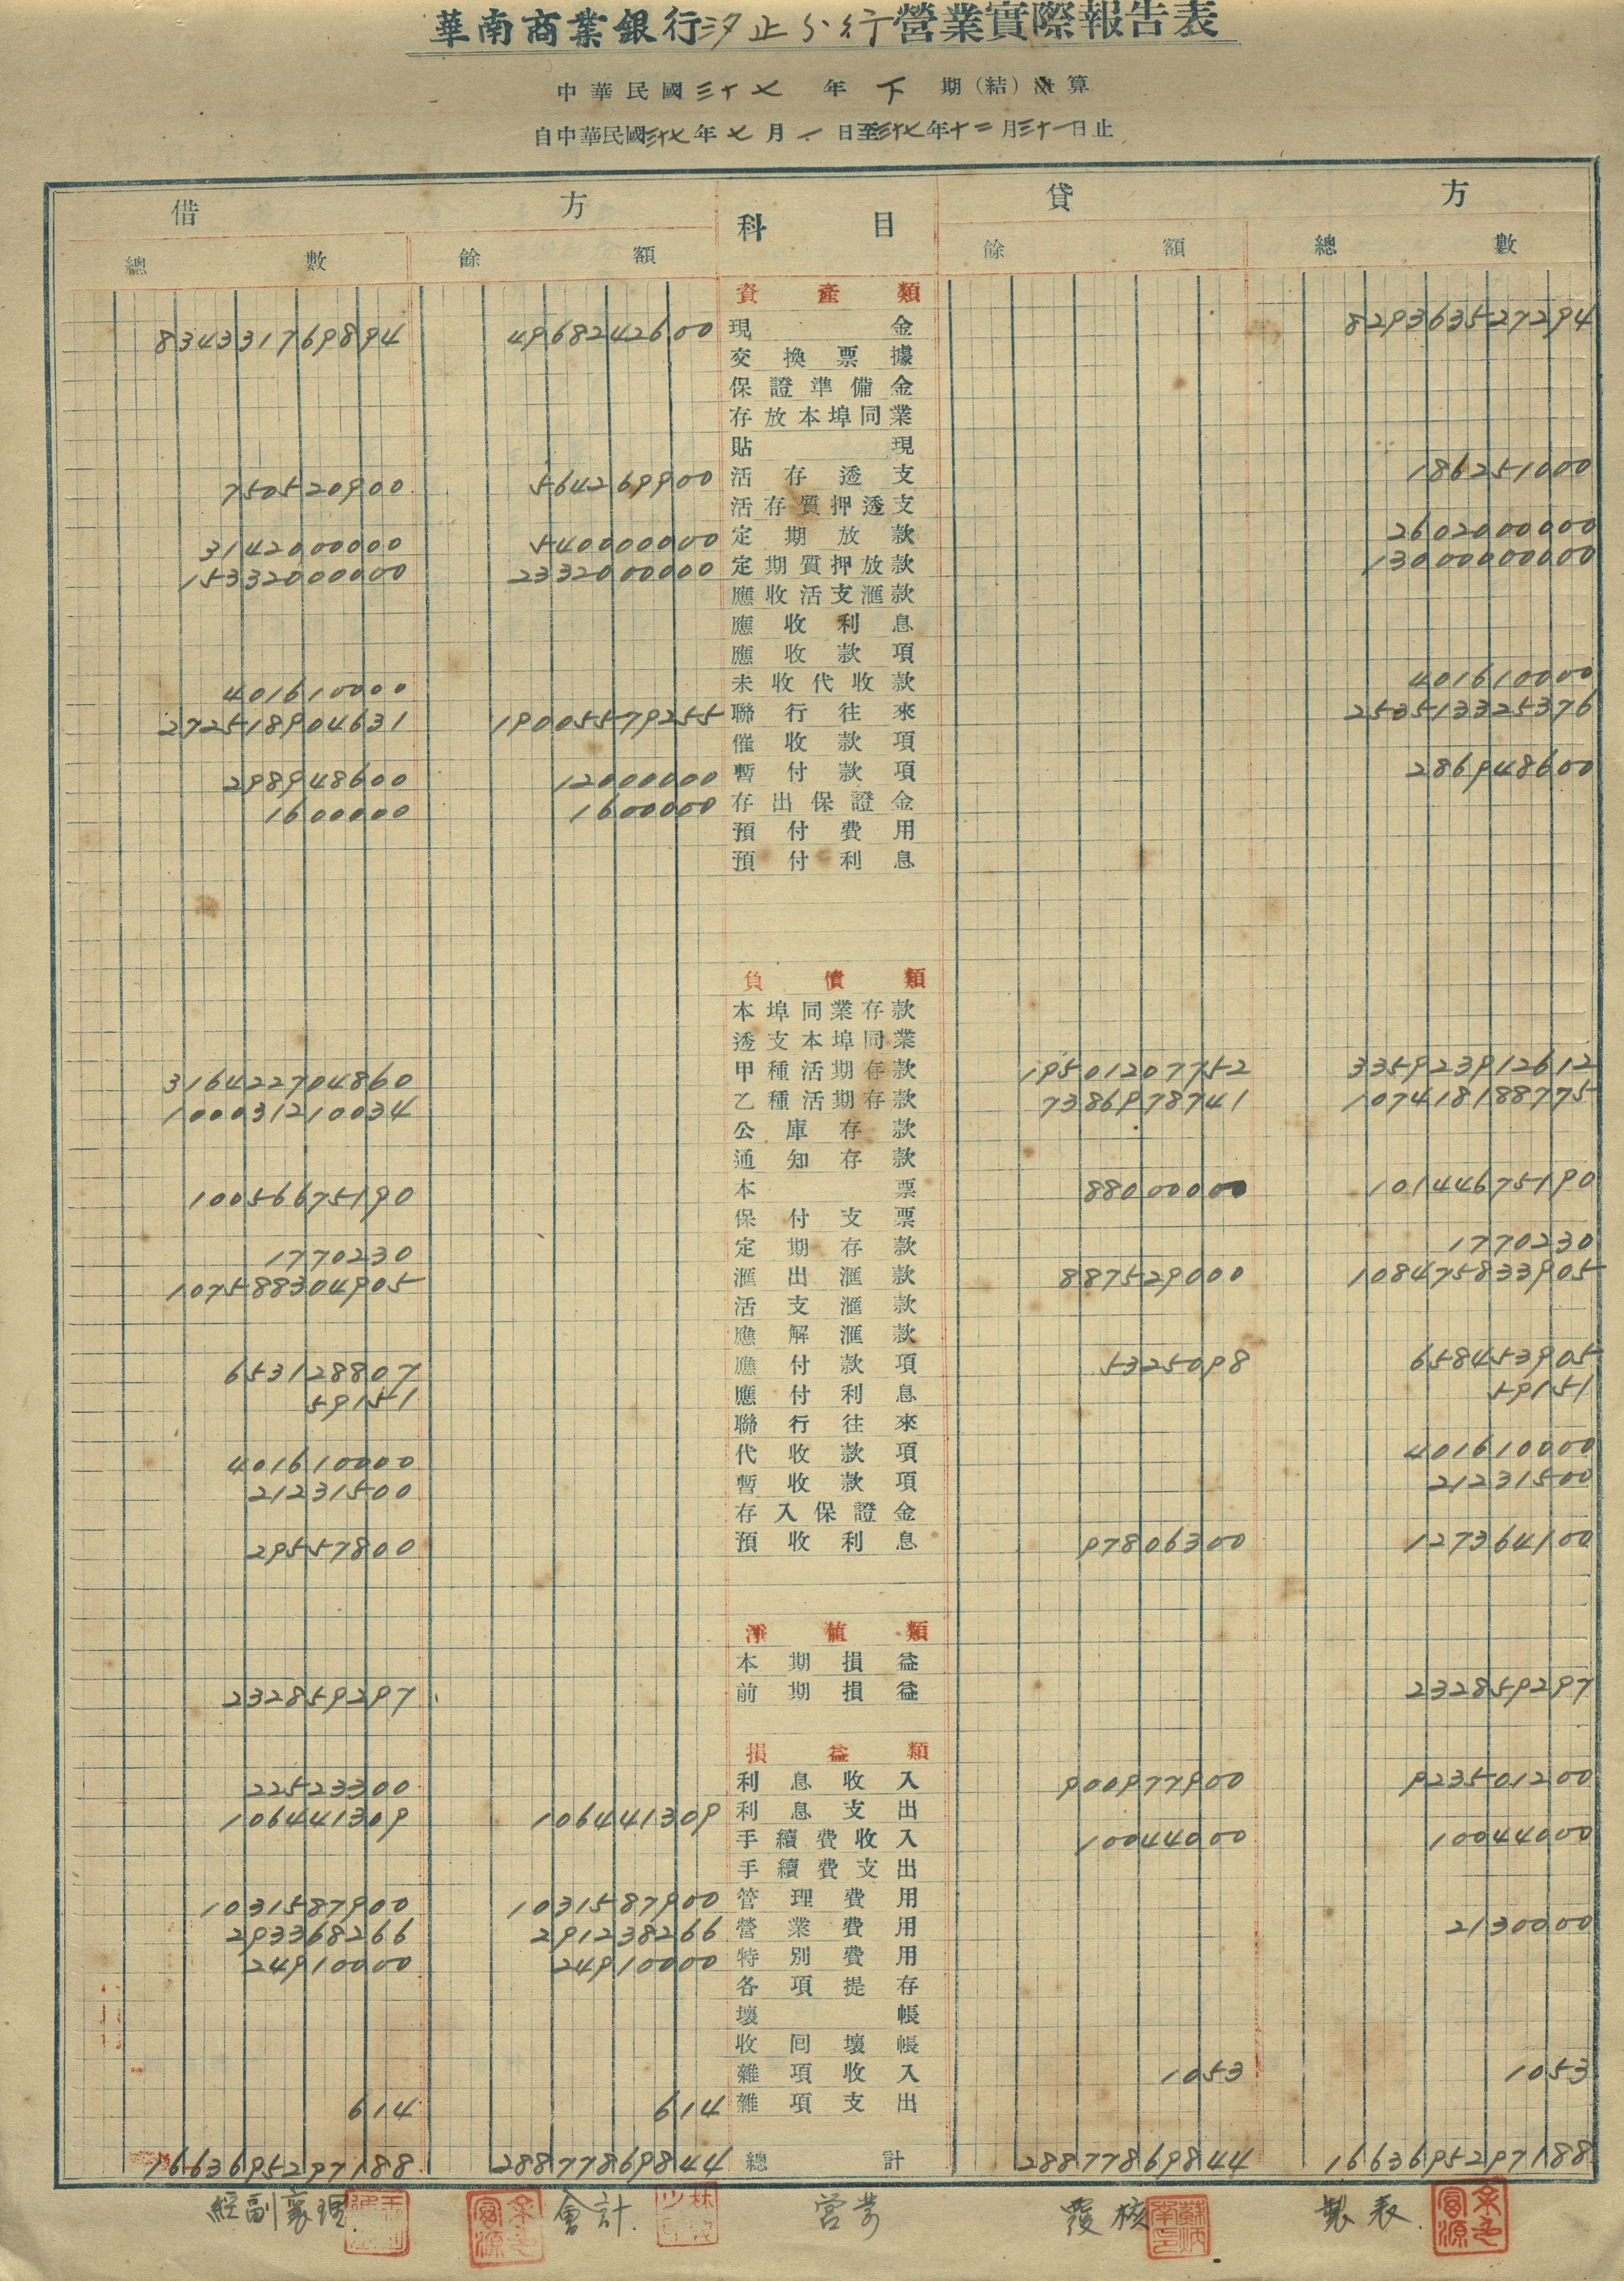 華南商業銀行汐止分行營業實際報告表
中華民國三十七年下期(結)決算
自中華民國三十七年七月一日至三十七年十二月三十一日止
借方 科目 貸方
總數 餘額 餘額 總數
資產類
834331769894 4968242600 現金 829363527294
交換票據
保證準備金
存放本埠同業
貼現
750520900 564269900 活存透支 186251000
活存質押透支
3142000000 540000000 定期放款 2602000000
15332000000 2332000000 定期質押放款 13000000000
應收活支滙款
應收利息
應收款項
401610000 未收代收款 401610000
272518904631 19005579255 聯行往來 253513325376
催收款項
298948600 12000000 暫付款項 286948600
1600000 1600000 存出保證金
預付費用
預付利息
負債類
本埠同業存款
透支本埠同業
316422704860 甲種活期存款 19501207752 335923912612
100031210034 乙種活期存款 7386978741 107418188775
公庫存款
通知存款
10056675190 本票 88000000 10144675190
保付支票
1770230 定期存款 1770230
107588304905 滙出滙款 887529000 108475833905
活支滙款
應解滙款
653128807 應付款項 5325098 658453905
59151 應付利息 59151
聯行往來
401610000 代收款項 401610000
21231500 暫收款項 21231500
存入保證金
29557800 預收利息 97806300 127364100
淨值類
本期損益
232859297 前期損益 232859297
損益類
22523300 利息收入 900977900 923501200
106441309 106441309 利息支出
手續費收入 10044000 10044000
手續費支出
1031587900 1031587900 管理費用
293368266 291238266 營業費用 2130000
24910000 24910000 特別費用
各項提存
壞帳
收回壞帳
雜項收入 1053 1053
614 614 雜項支出
1663695297188 28877869844 總計 28877869844 1663695297188
經副襄理 會計 营業 覆核 製表